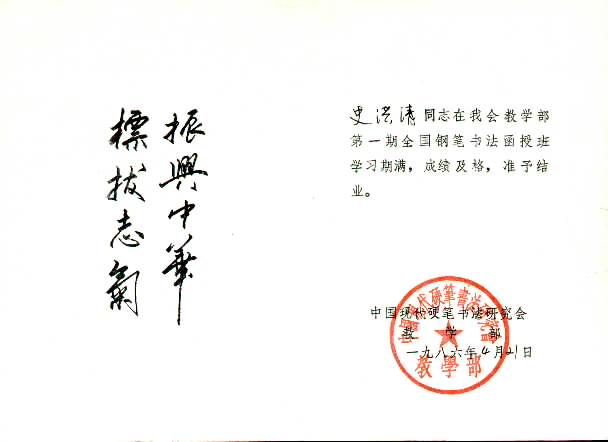 振興中華
標拔志氣
史洪清同志在我会教学部
第一期全国钢笔书法函授班
学习期满，成绩及格，准予结
业。
中国现代硬笔书法研究会
教学部
一九八六年4月21日
中國现代硬筆書法研究會
教學部